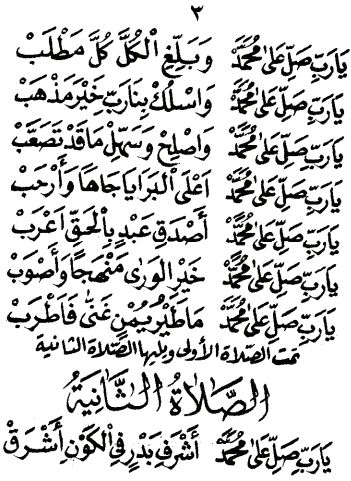 ٣
يَارَبِّ صَلِّ عَلىٰ مُحَمَّدْ وَبَلِّغِ الْكُلَّ كُلَّ مَطْلَبْ
يَارَبِّ صَلِّ عَلىٰ مُحَمَّدْ وَاسْلُكْ بِنَارَبِّ خَيْرَ مَذْهَبْ
يَارَبِّ صَلِّ عَلىٰ مُحَمَّدْ وَاصْلِحْ وَسَهِّلْ مَاقَدْ تَصَعَّبْ
يَارَبِّ صَلِّ عَلىٰ مُحَمَّدْ اَعْلَى الْبَرَايَا جَاهًا وَأَرْحَبْ
يَارَبِّ صَلِّ عَلىٰ مُحَمَّدْ أَصْدَقِ عَبْدٍ بِالْحَقِّ اَعْرَبْ
يَارَبِّ صَلِّ عَلىٰ مُحَمَّدْ خَيْرِ الْوَرٰى مَنْهَجًا وَأَصْوَبْ
يَارَبِّ صَلِّ عَلىٰ مُحَمَّدْ مَاطَيْرُ يُمْنٍ غَنّٰى فَاَطْرَبْ
تمت الصلاة الأولى ويليها الصّلاة الثانية
اَلصَّلَاةُ الثَّانِيَةُ
يَارَبِّ صَلِّ عَلىٰ مُحَمَّدْ أَشْرَفِ بَدْرٍ فِي الْكَوْنِ أَشْرَقْ